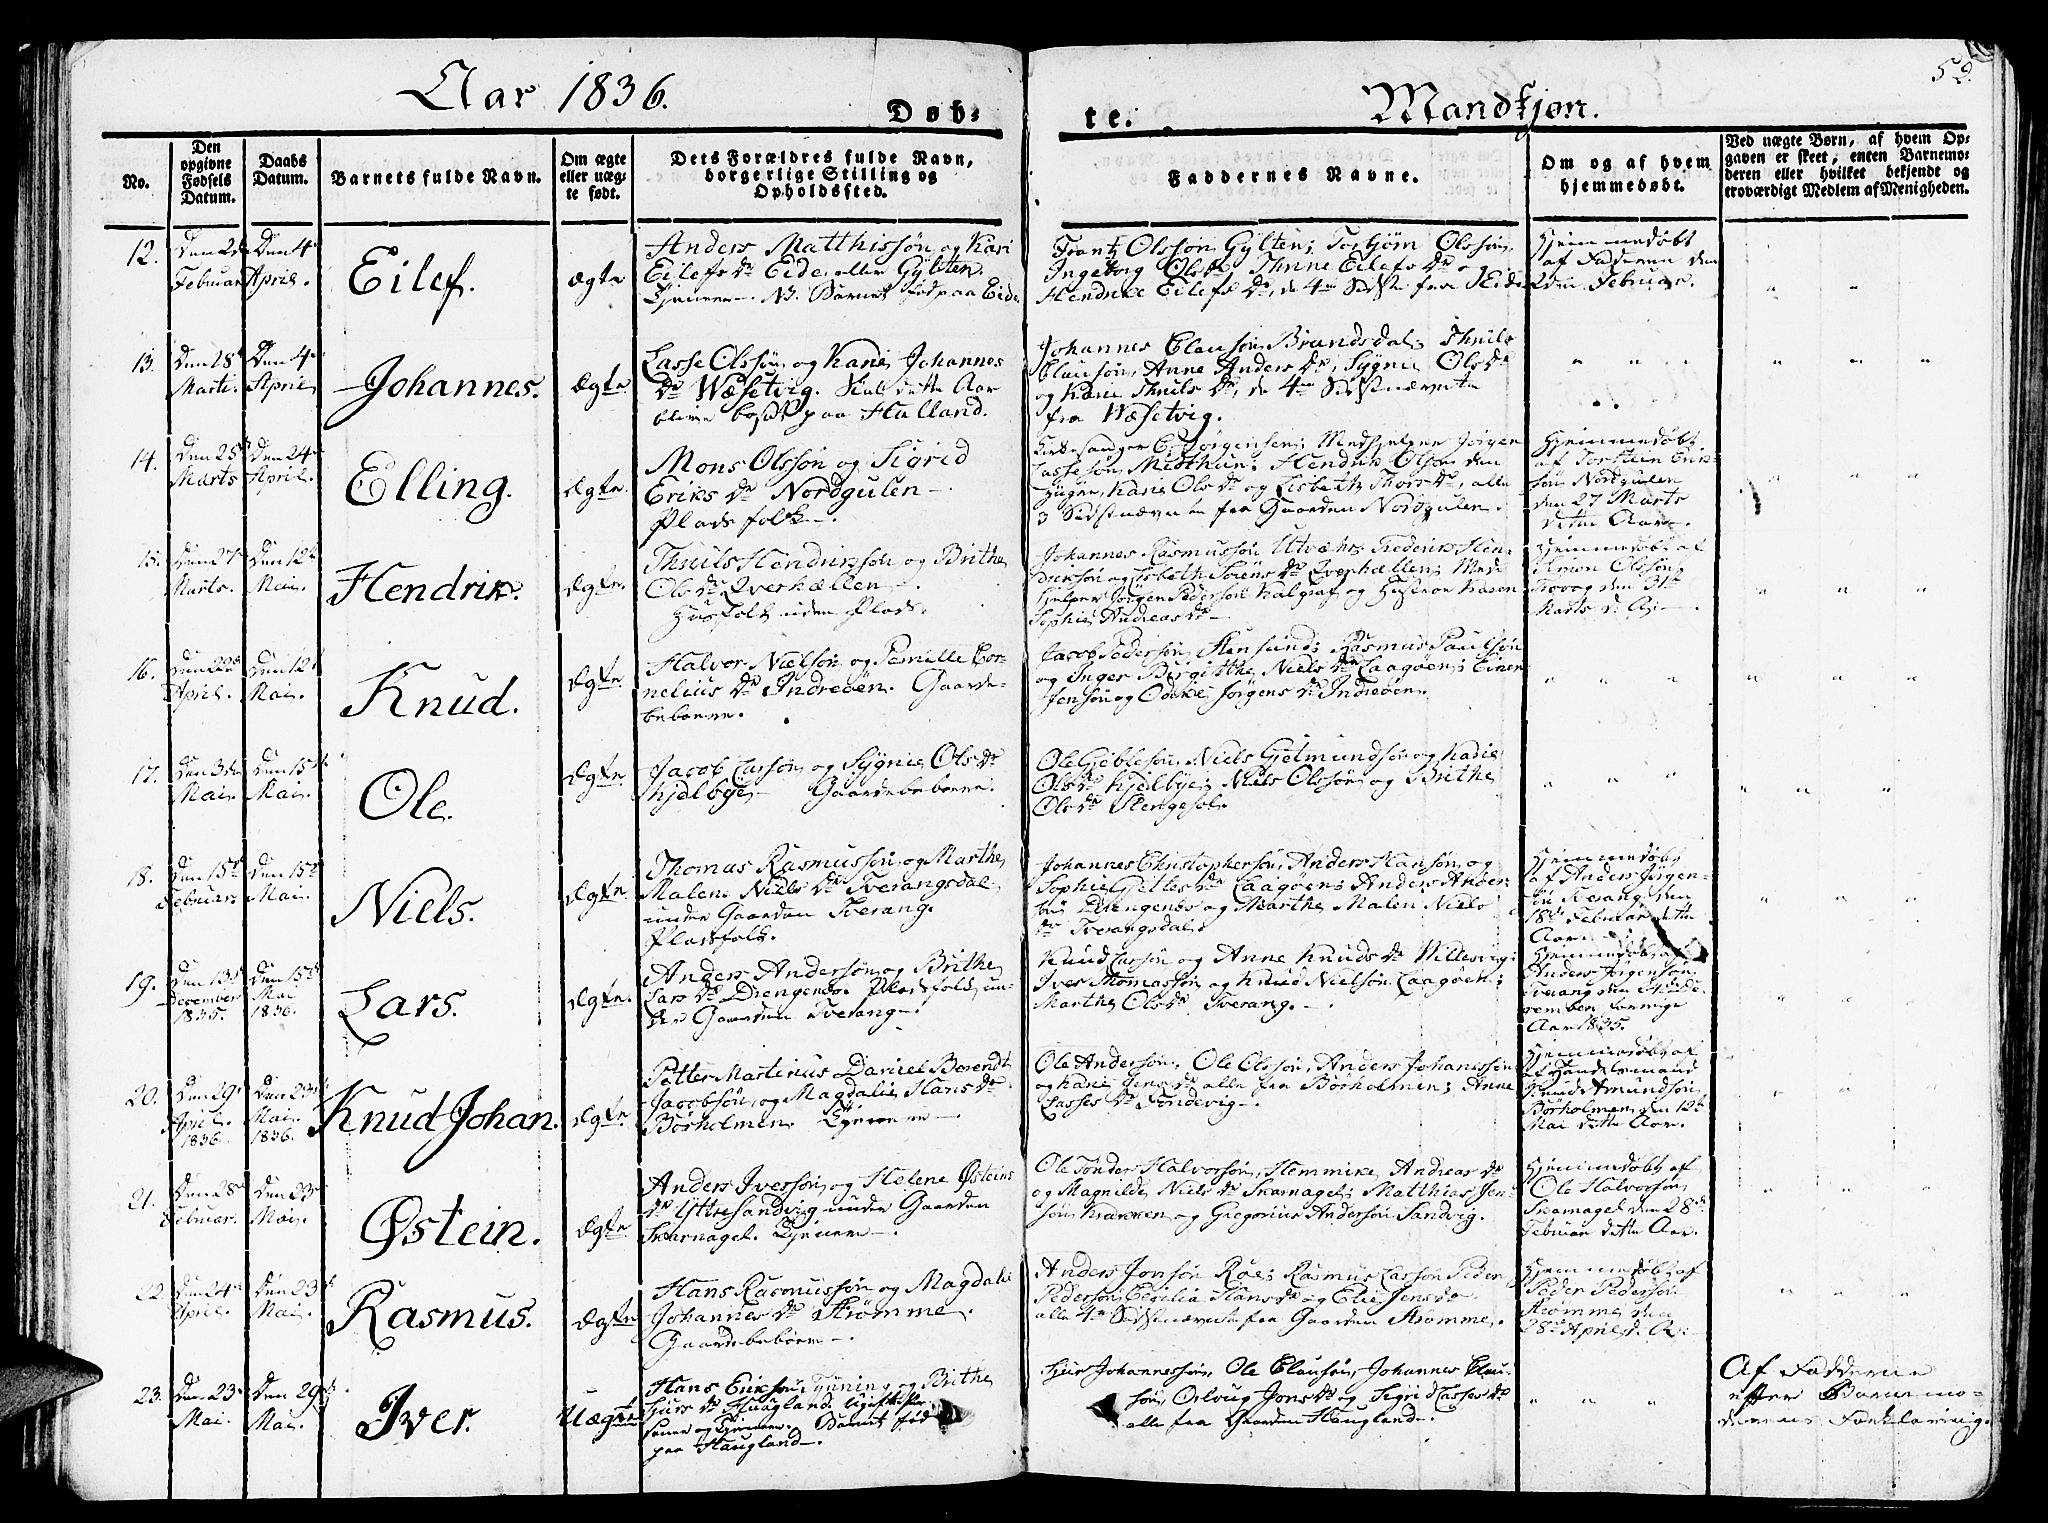 Aar 1836.
Døb-
te.
Mandkjøn.
52.
No.
Den
opgivne
Fødsels
Datum.
Daabs
Datum.
Barnets fulde Navn.
Om ægte
eller uæg-
te født.
Dets Forældres fulde Navn,
borgerlige Stilling og
Opholdssted.
Faddernes Navne.
Om og af hvem
hjemmedøbt.
Ved uægte Børn, af hvem Op-
gaven er skeet, enten Barnemo-
deren eller hvilket bekjendt og
troværdigt Medlem af Menigheden.
12.
Den 2den
Februar
Den 4de
April.
Eilef.
ægte
Anders Matthissøn og Kari
Eilefs Dr Eide, eller Gylten.
Tjenere. NB. Barnet født paa Eide
Frantz Olssøn Gylten; Torbjørn Olssøn,
Ingeborg Ols Dr, Thrine Eilefs Dr og
Hendrike Eilefs Dr, de 4re Sidste fra Eide
Hjemmedøbt
af Faderen den
2den Februar.
13.
Den 18de
Marts.
Den 4de
April
Johannes.
Ægte.
Lasse Olssøn og Kari Johannes
Dr Wæsetvig. Skal dette Aar
blive bosat paa Halland.
Johannes Clausøn Brandsdal; Thiils
Clausøn, Anne Anders Dr, Sygni Ols Dr
og Kari Thiils Dr, de 4re Sidstnævnte
fra Wæsetvig.
14.
Den 25de
Marts
Den 24de
April.
Elling.
Ægte.
Mons Olssøn og Sigrid
Eriks Dr Nordgulen
Pladsfolk.
Kirkesanger E. Jørgensen; Medhjelper Jørgen
Lassesøn Midthun; Hendrik Olsøn den
Yngre, Kari Ols Dr og Lisbeth Thors Dr, alle
3 Sidstnævnte fra Gaarden Nordgulen.
Hjemmedøbt
af Torstein Erik-
søn Nordgulen
den 27 Marts
dette Aar.
15.
Den 27de
Marts.
Den 12te
Mai.
Hendrik.
Ægte.
Thiils Hendrikssøn og Brithe
Ols Dr Qverhællen
Husfolk uden Plads.
Johannes Rasmussøn Utvæhr, Frederik Hen-
driksøn og Lisbeth Sørens Dr Qverhællen; Med-
hjelper Jørgen Pedersøn Kalgraf og Hustroe Karen
Sophie Andreas Dr
Hjemmedøbt af
Simon Olssøn
Trovog den 31te
Marts d. A.
16.
Den 22de
April.
Den 12te
Mai.
Knud.
Ægte.
Halvor Nielsøn og Pernille Cor-
nelius Dr Indreøen. Gaardbe-
beboere.
Jacob Pedersøn Steensund; Rasmus Paulsøn
og Inger Birgithe Niels Dr Laagøen; Einer
Jensøn og Odeke Jørgens Dr Indreøen.
17.
Den 3die
Mai.
Den 15de
Mai.
Ole.
Ægte.
Jacob Larsøn og Sygni Ols Dr
Hjelbye. Gaardebeboere.
Ole Gjeblesøn, Niels Gjelmundsøn og Kari
Ols Dr Hjelbye; Niels Olssøn og Brithe
Ols Dr Stengesøl.
18.
Den 15de
Februar.
Den 15de
Mai.
Niels.
Ægte.
Thomas Rasmussøn og Marthe
Malene Niels Dr Tverangsdal,
under Gaarden Tverang.
Pladsfolk.
Johannes Christophersøn, Anders Hansøn og
Sophie Gjetles Dr Laagøen; Anders Anders-
søn Drengenes og Marthe Malene Niels
Dr Tverangsdal.
Hjemmedøbt
af Anders Jørgen-
søn Tverang den
18de Februar dette
Aar.
19.
Den 13de
December
1835.
Den 15de
Mai
1836.
Lars.
Ægte.
Anders Andersøn og Brithe
Lars Dr Drengenes. Pladsfolk un-
der Gaarden Tverang.
Knud Larsøn og Anne Knuds Dr Willesvig;
Iver Thomassøn og Knud Nielsøn Laagøen;
Marthe Ols Dr Tverang.
Hjemmedøbt af
Anders Jørgensøn
Tverang den De-
cember forrige
Aar 1835.
20.
Den 29de
April
1836.
Den 23de
Mai.
1836.
Knud Johan.
Ægte
Petter Martinus Daniel Berendt
Jacobsøn og Magdali Hans Dr
Børholmen. Tjenere.
Ole Andersøn, Ole Olssøn, Anders Johanessøn
og Kari Jens Dr alle fra Børholmen; Anne
Lasses Dr Tondevig.
Hjemmedøbt af
Handelsmand
Knud Amundsøn
Børholmen den 12te
Mai dette Aar.
21.
Den 28de
Februar.
Den 23de
Mai.
Østein.
Ægte
Anders Iversøn og Helene Østeins
Dr Yttresandvig under Gaarden
Skarnaget. Tjenere.
Ole Tønder Halvorsøn, Hemmike Andreas Dr
og Magnilde Niels Dr Skarnaget; Matthias Jen-
søn Krakken og Gregorius Andersøn Sandvig.
Hjemmedøbt af
Ole Halvorsøn
Skarnaget den 28de
Februar dette Aar.
22.
Den 24de
April.
Den 23de
Mai.
Rasmus.
Ægte
Hans Rasmussøn og Magdali
Johannes Dr Strømme.
Gaardebeboere.
Anders Jonsøn Røe; Rasmus Larssøn, Peder
Pedersøn, Cecilia Hans Dr og Eli Jens Dr
alle 4re Sidstnævnte fra Gaarden Strømme.
Hjemmedøbt af
Peder Pedersøn
Strømme den
28de April d. A.
23.
Den 23de
Mai.
Den 29de
Mai.
Iver.
Uægte
Hans Eriksøn Tyning og Brithe
Siurs Dr Haugland, ugifte Per-
soner og Tjenere. Barnet født
paa Haugland.
Siur Johannessøn, Ole Clausøn, Johannes Clau-
søn, Orlaug Jons Dr og Sigri Lasses Dr
alle fra Gaarden Haugland.
Af Fadderne
efter Barnemo-
derens Forklaring.